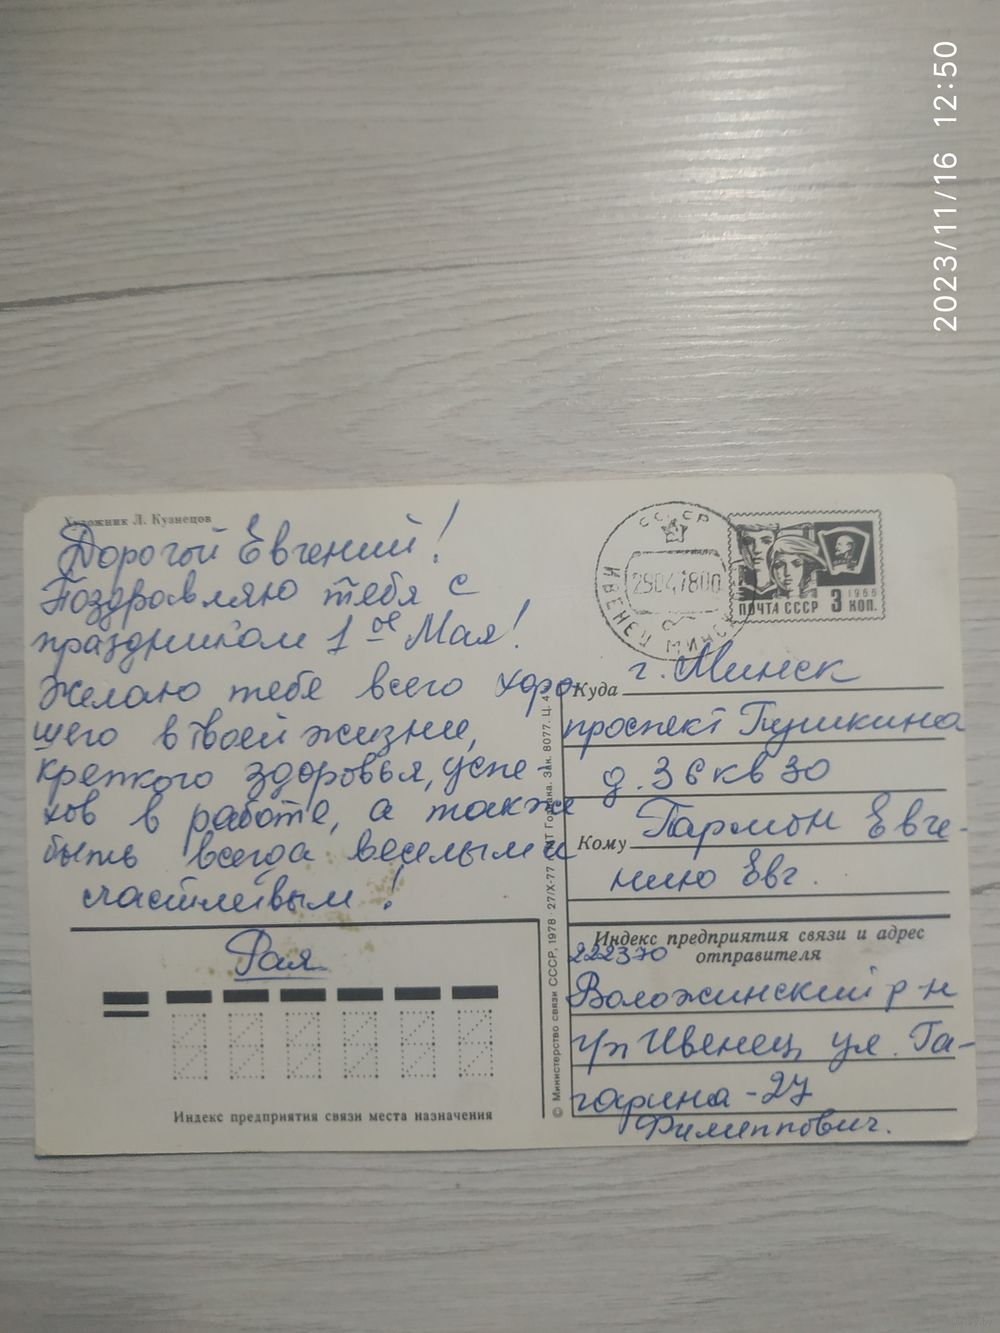 2023/11/16 12:50
Художник Л. Кузнецов
Дорогой Евгений!
Поздравляю тебя с
праздником 1 ое Мая!
Желаю тебе всего хоро
шего в твоей жизни,
крепкого здоровья, успе
хов в работе, а также
быть всегда веселым и
счастливым!
Рая
Индекс предприятия связи места назначения
© Министерство связи СССР, 1978 · 27/X-77 Зак. 8077. Ц. 4
СССР
290478
ИВЕНЕЦ МИНСК
ПОЧТА СССР 3 КОП.
1966
Куда г. Минск
проспект Пушкина
д. 36 кв 30
Кому Гармон Евге-
нию Евг.
Индекс предприятия связи и адрес
отправителя
222370
Воложинский р-н
г/п Ивенец ул. Га-
гарина - 27
Филиппович.